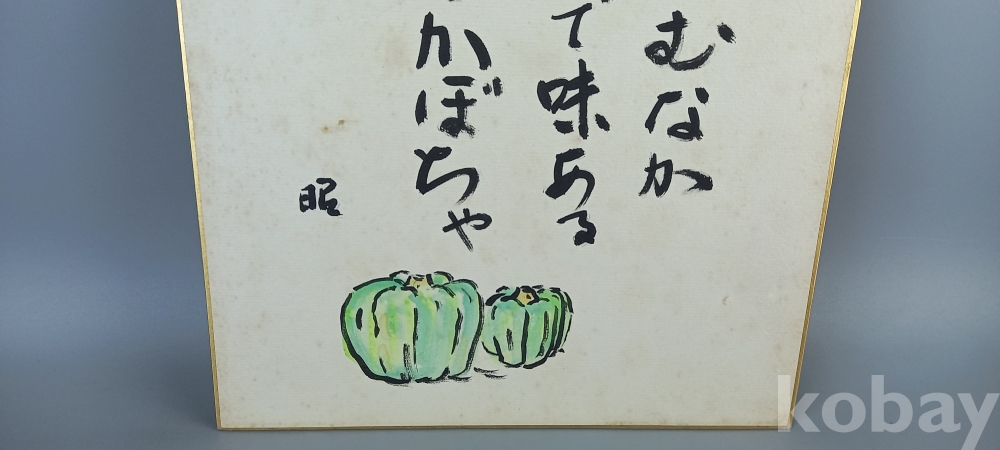 むなか
で味ある
かぼちゃ
眠
kobay